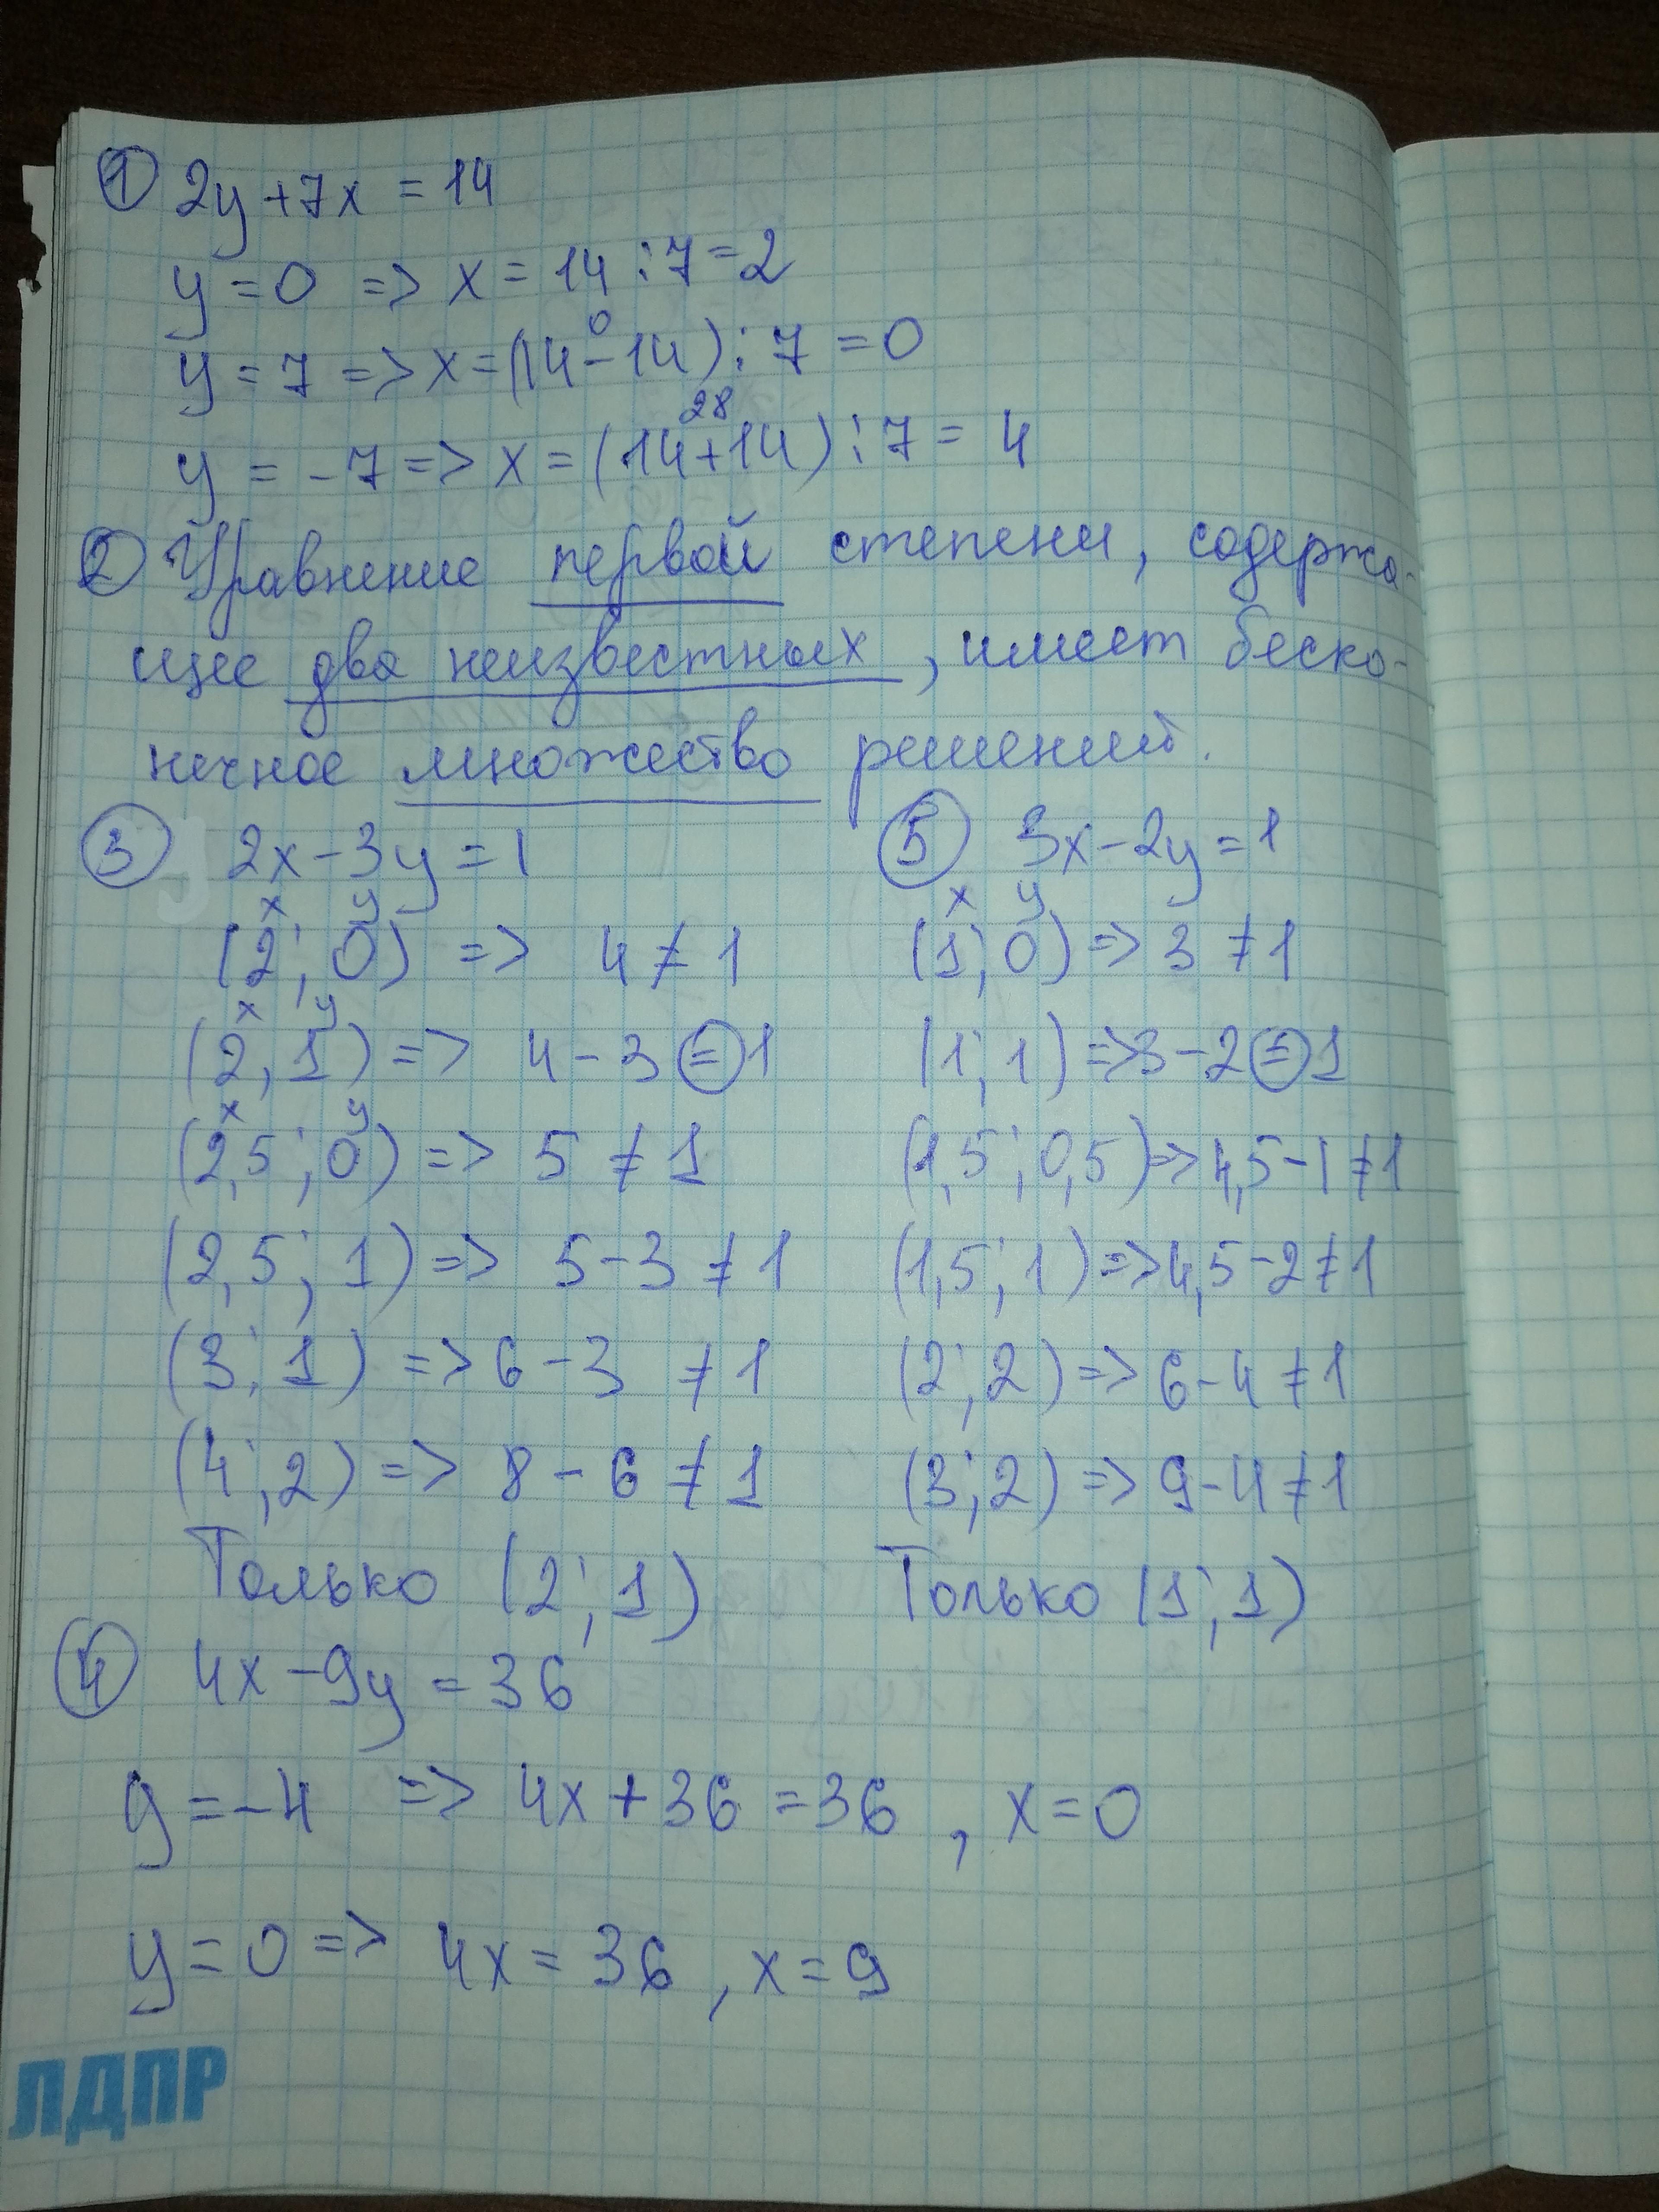 ① 2y+7x = 14
y = 0 => x = 14 : 7 = 2
0
y = 7 => x = (14-14) : 7 = 0
28
y = -7 => x = (14+14) : 7 = 4
② Уравнение первой степени, содержа-
щее два неизвестных, имеет беско-
нечное множество решений.
③ 2x-3y=1
x y
(2; 0) => 4 ≠ 1
x y
(2, 1) => 4-3 = 1
x y
(2,5; 0) => 5 ≠ 1
(2,5; 1) => 5-3 ≠ 1
(3; 1) => 6-3 ≠ 1
(4; 2) => 8-6 ≠ 1
Только (2; 1)
⑤ 3x-2y=1
x y
(1; 0) => 3 ≠ 1
(1; 1) => 3-2 = 1
(1,5; 0,5) => 4,5-1 ≠ 1
(1,5; 1) => 4,5-2 ≠ 1
(2; 2) => 6-4 ≠ 1
(3; 2) => 9-4 ≠ 1
Только (1; 1)
④ 4x-9y = 36
y = -4 => 4x + 36 = 36, x = 0
y = 0 => 4x = 36, x = 9
ЛДПР